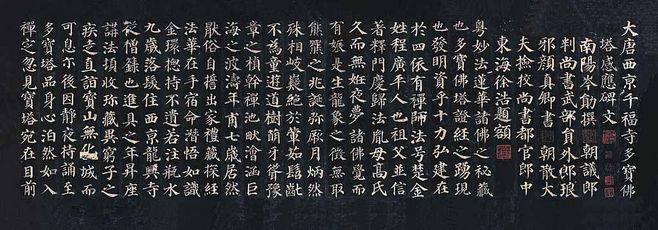 大唐西京千福寺多寶佛
塔感應碑文
南陽岑勛撰 朝議郎
判尚書武部員外郎琅
邪顏真卿書 朝散大
夫檢校尚書都官郎中
東海徐浩題額
粵妙法蓮華諸佛之秘藏
也多寶佛塔證經之踴現
也發明資乎十力弘建在
於四依有禪師法号楚金
姓程廣平人也祖父並信
著釋門慶歸法胤母高氏
久而無姙夜夢諸佛覺而
有娠是生龍象之徵無取
熊羆之兆誕弥厥月炳然
殊相岐嶷絕於葷茹髫齔
不為童遊道樹萌牙聳豫
章之楨幹禪池畎澮涵巨
海之波濤年甫七歲居然
猒俗自誓出家禮藏探經
法華在手宿命潛悟如識
金環揔持不遺若注瓶水
九歲落髮住西京龍興寺
從僧籙也進具之年昇座
講法頓收珍藏異窮子之
疾走直詣寶山無化城而
可息尒後因靜夜持誦至
多寶塔品身心泊然如入
禪定忽見寶塔宛在目前